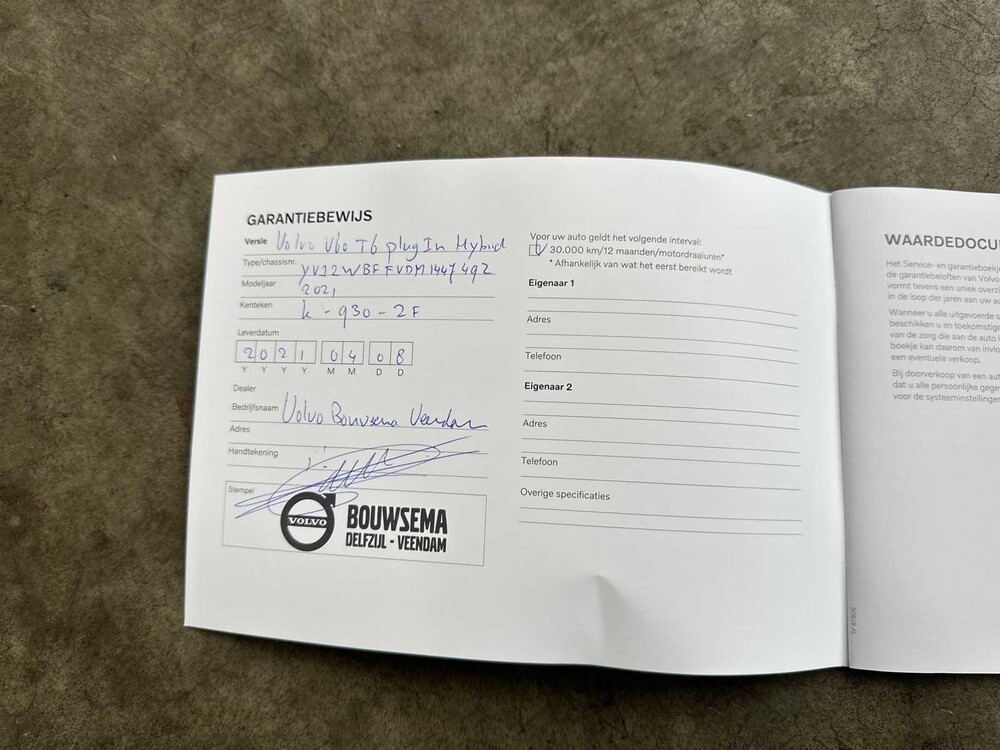 GARANTIEBEWIJS
Versie Volvo V60 T6 plug In Hybrid
Type/chassisnr. YV1ZWBFFVDM1447492
Modeljaar 2021
Kenteken k-930-2F
Leverdatum
2 0 2 1 0 4 0 8
Y Y Y Y M M D D
Dealer
Bedrijfsnaam Volvo Bouwsema Veendam
Adres
Handtekening
Stempel
VOLVO
BOUWSEMA
DELFZIJL - VEENDAM
Voor uw auto geldt het volgende interval:
30.000 km/12 maanden/motordraaiuren*
* Afhankelijk van wat het eerst bereikt wordt
Eigenaar 1
Adres
Telefoon
Eigenaar 2
Adres
Telefoon
Overige specificaties
TP 87909
WAARDEDOCU
Het Service- en garantieboekj
de garantiebeloften van Volvo
vormt tevens een uniek overzi
in de loop der jaren aan uw a
Wanneer u alle uitgevoerde s
beschikken u en toekomstige
van de zorg die aan de auto i
boekje kan daarom van invlo
een eventuele verkoop.
Bij doorverkoop van een aut
dat u alle persoonlijke gege
voor de systeeminstellingen